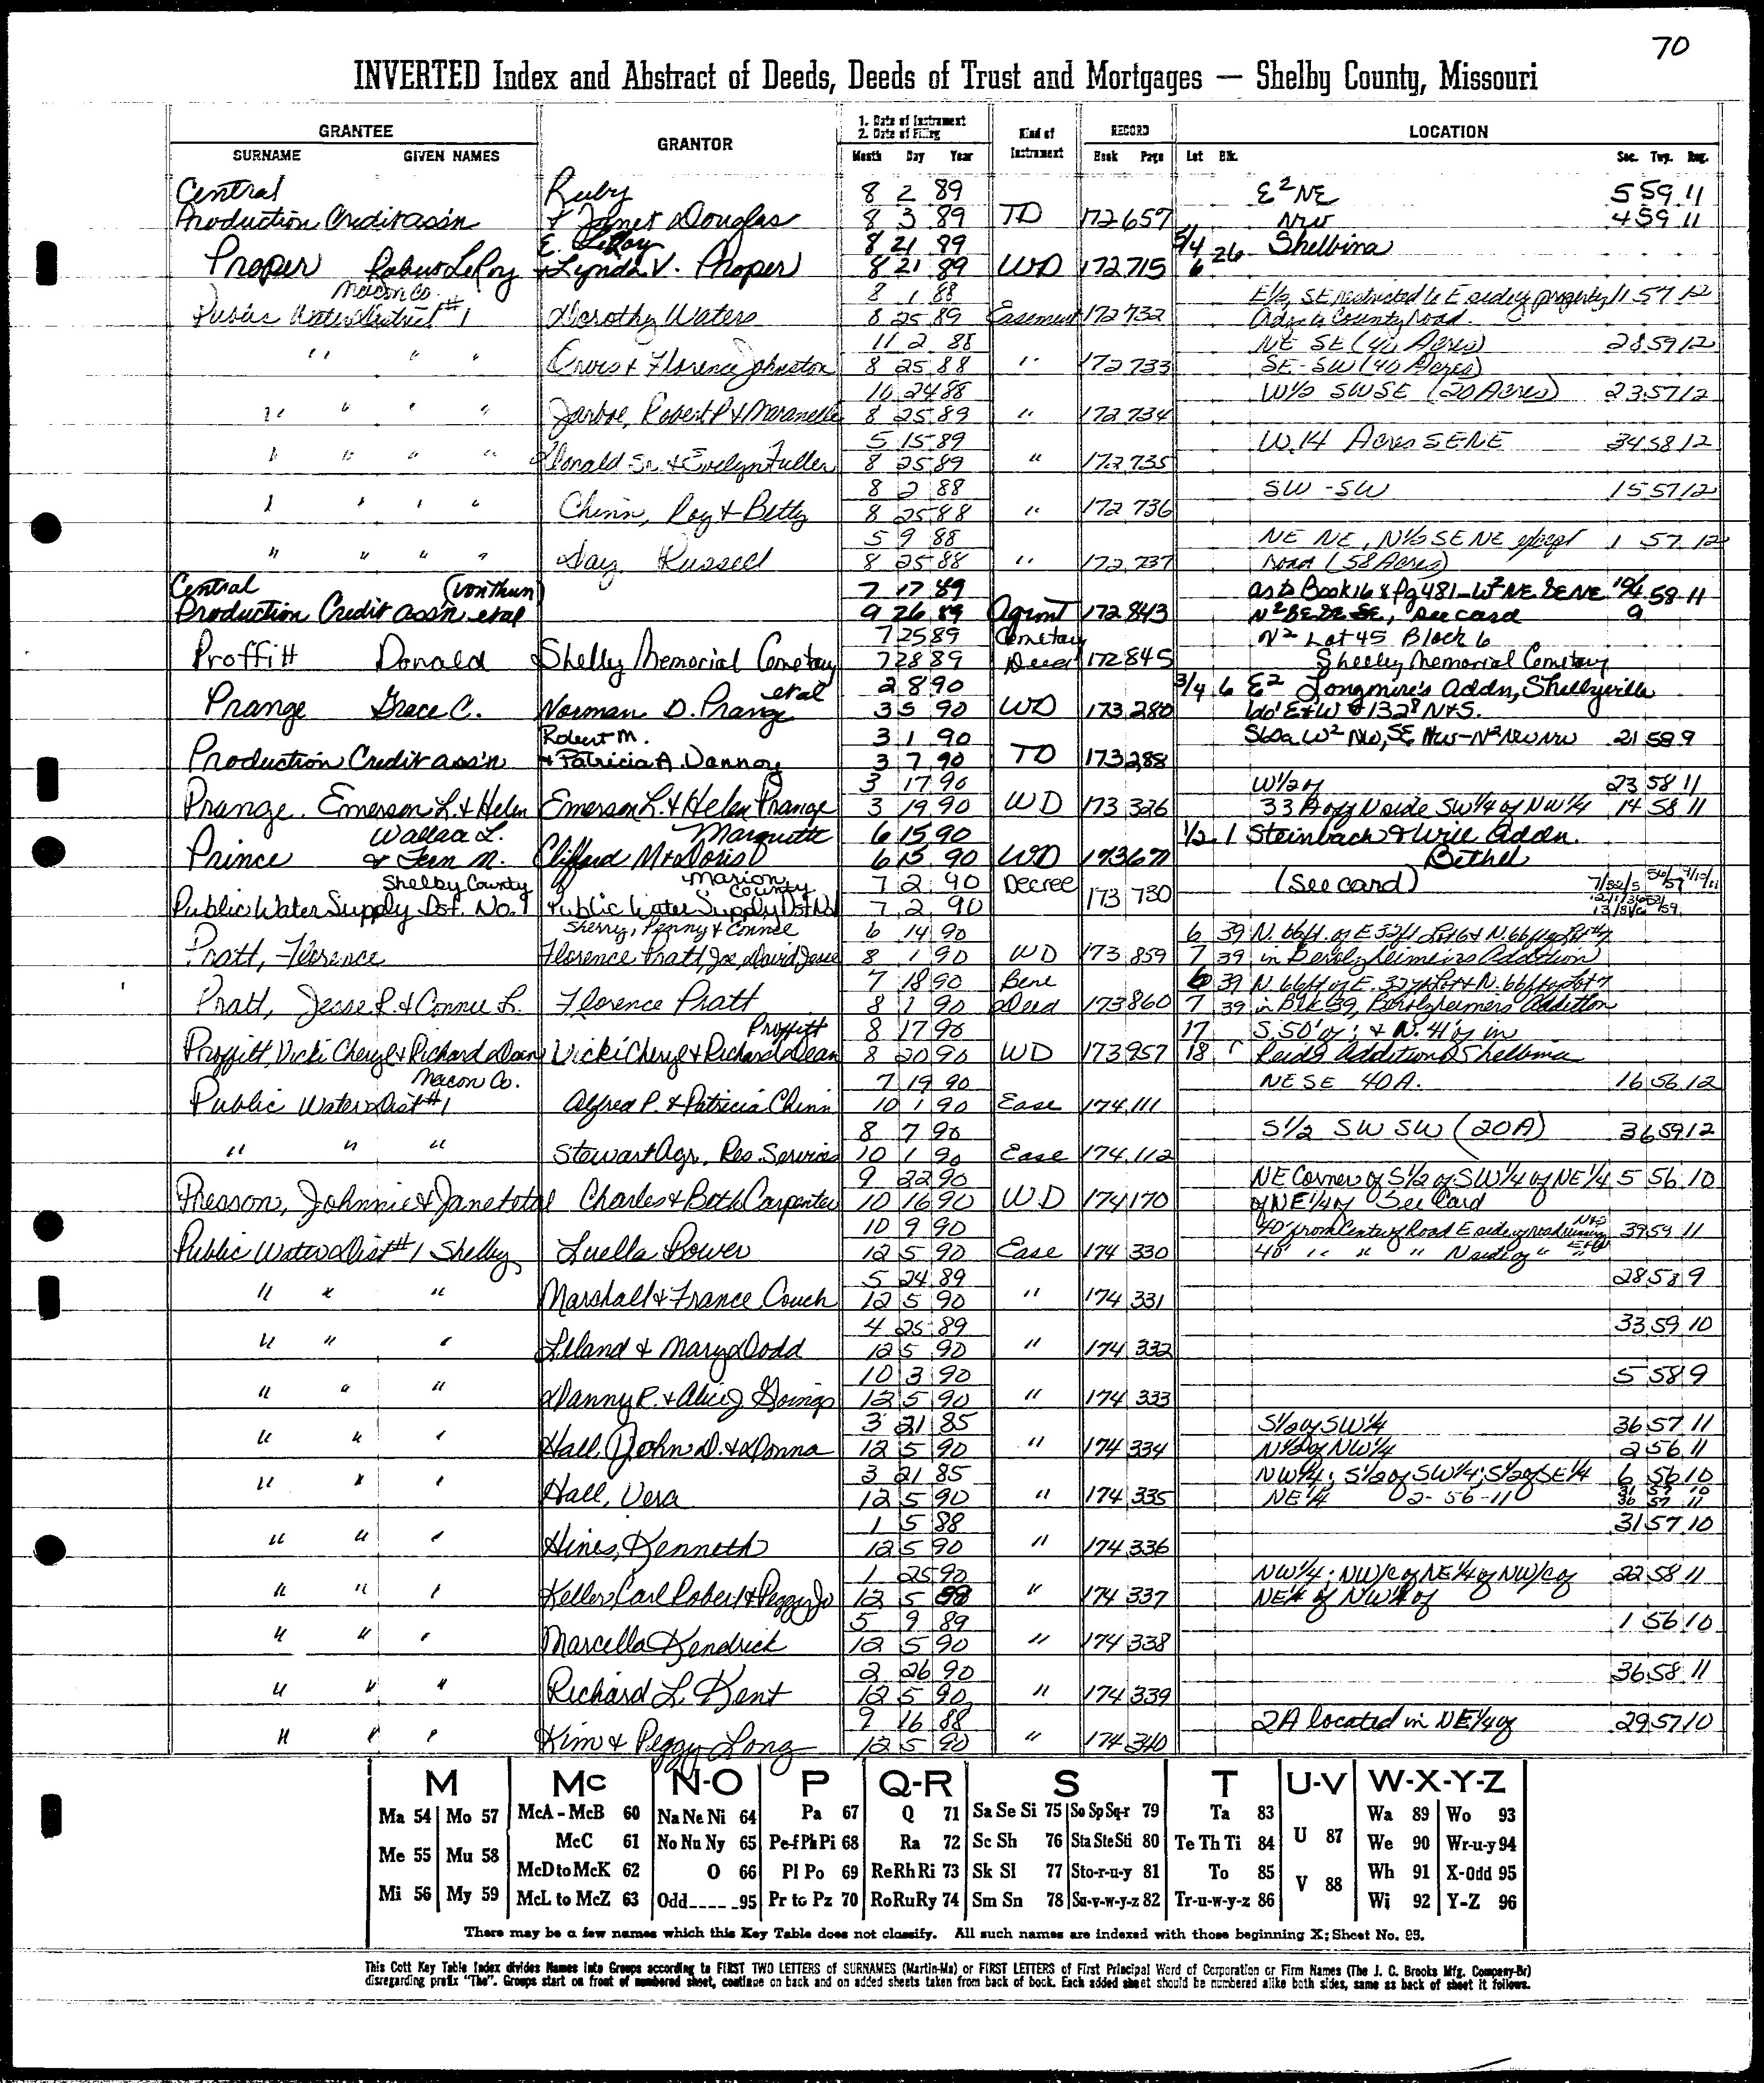 70
INVERTED Index and Abstract of Deeds, Deeds of Trust and Mortgages — Shelby County, Missouri
GRANTEE
SURNAME GIVEN NAMES
GRANTOR
1. Date of Instrument
2. Date of Filing
Month Day Year
Kind of Instrument
RECORD
Book Page
LOCATION
Lot Blk. Sec. Twp. Rng.
Central Ruby 8 2 89 E² NE 5 59 11
Production Credit ass'n & Janet Douglas 8 3 89 TD 172 657 NW 4 59 11
E. LeRoy 8 21 89 5/4 26 Shelbina
Proper Robert LeRoy & Lynda V. Proper 8 21 89 WD 172 715 6
Macon Co. 8 1 88 E½ SE restricted to E side of property 11 57 12
Public Water District #1 Dorothy Waters 8 25 89 Easement 172 732 County Road.
11 2 88 NE SE (40 Acres) 28 59 12
" " " & Florence Johnston 8 25 88 " 172 733 SE-SW (40 Acres)
10 24 88 W½ SWSE (20 Acres) 23 57 12
" " " " Jarboe, Robert P & Maranelle 8 25 89 " 172 734
5 15 89 W. 14 Acres SE-NE 34 58 12
" " " " Donald Sr. & Evelyn Fuller 8 25 89 " 172 735
8 2 88 SW-SW 15 57 12
" " " " Chinn, Roy & Betty 8 25 88 " 172 736
5 9 88 NE NE, N½ SE NE except 1 57 12
" " " " Day Russell 8 25 88 " 172 737 road (58 Acres)
Central (VonThun) 7 17 89 as to Book 168 Pg 481-W² NE SE NE 10/4 58 11
Production Credit ass'n et al 9 26 89 Agrmt 172 843 N² SE SE SE, see card 9
7 25 89 Cemetary N² Lot 45 Block 6
Proffitt Donald Shelby Memorial Cemetary 7 28 89 Deed 172 845 Shelby Memorial Cemetary
et al 2 8 90 3/4 6 E² Longmire's Addn, Shelbyville
Prange Grace C. Norman D. Prange 3 5 90 WD 173 280 E&W & 132⁸ N&S.
Robert M. 3 1 90 W² NW, SE NW-N² NW NW 21 58 9
Production Credit ass'n & Patricia A. Vannoy 3 7 90 TD 173 288
3 17 90 W½ of 23 58 11
Prange. Emerson L. & Helen Emerson L. & Helen Prange 3 19 90 WD 173 326 33 A off N side SW¼ of NW¼ 14 58 11
Wallace L. Marquette 6 15 90 1/2 1 Steinbach & Will Addn.
Prince & Fern M. Clifford M & Doris 6 15 90 WD 173 671 Bethel
Shelby County of Marion County 7 2 90 Decree (See card)
Public Water Supply Dist. No. 1 Public Water Supply Dist No 1 7 2 90 173 730
Sherry, Penny & Connie 6 14 90 6 39 N. 66 ft. of E 32 ft Lot 6 & N. 66 ft of Lot #7
Pratt, Florence Florence Pratt, Joe, David, Jesse 8 1 90 WD 173 859 7 39 in Berolzheimers Addition
7 18 90 Bene 6 39 N. 66 ft of E. 32 ft Lot 6 & N. 66 ft of Lot 7
Pratt, Jesse R. & Connie L. Florence Pratt 8 1 90 Deed 173 860 7 39 in Blk 39, Berolzheimers Addition
Proffitt 8 17 90 17 S. 50' of; & N. 4' of in
Proffitt, Vicki Cheryl & Richard Dean Vicki Cheryl & Richard Dean 8 20 90 WD 173 957 18 1 Reid's Addition Shelbina
Macon Co. 7 19 90 NE SE 40 A. 16 56 12
Public Water Dist #1 Alfred P. & Patricia Chinn 10 1 90 Ease 174 111
8 7 90 S½ SW SW (20A) 36 59 12
" " " Stewart Agr. Res. Services 10 1 90 Ease 174 112
9 22 90 NE Corner of S½ of SW¼ of NE¼ 5 56 10
Presson, Johnnie & Janet et al Charles & Beth Carpenter 10 16 90 WD 174 170 of NE¼ of See Card
10 9 90 40' from Center of Road E side of road running N&S 39 59 11
Public Water Dist #1 Shelby Luella Power 12 5 90 Ease 174 330 40' " " " N side of " " E&W
5 24 89 28 58 9
" " " Marshall & France Couch 12 5 90 " 174 331
4 25 89 33 59 10
" " " Leland & Mary Dodd 12 5 90 " 174 332
10 3 90 5 58 9
" " " Danny R. & Alice J. Goings 12 5 90 " 174 333
3 21 85 S½ of SW¼ 36 57 11
" " " Hall, John D. & Donna 12 5 90 " 174 334 N½ of NW¼ 2 56 11
3 21 85 NW¼; S½ of SW¼; S½ of SE¼ 6 56 10
" " " Hall, Vera 12 5 90 " 174 335 NE¼ 2-56-11 31 57 10
36 57 11
1 5 88 31 57 10
" " " Hines, Kenneth 12 5 90 " 174 336
1 25 90 NW¼; NW/c of NE¼ of NW/c of 22 58 11
" " " Keller, Carl Robert & Peggy Jo 12 5 90 " 174 337 NE¼ of NW¼ of
5 9 89 1 56 10
" " " Marcella Kendrick 12 5 90 " 174 338
2 26 90 36 58 11
" " " Richard L. Kent 12 5 90 " 174 339
9 16 88 2A located in NE¼ of 29 57 10
" " " Kim & Peggy Long 12 5 90 " 174 340
M Mc N-O P Q-R S T U-V W-X-Y-Z
Ma 54 Mo 57 McA-McB 60 Na Ne Ni 64 Pa 67 Q 71 Sa Se Si 75 So Sp Sq-r 79 Ta 83 U 87 Wa 89 Wo 93
Me 55 Mu 58 McC 61 No Nu Ny 65 Pe-f Ph Pi 68 Ra 72 Sc Sh 76 Sta Ste Sti 80 Te Th Ti 84 We 90 Wr-u-y 94
McD to McK 62 O 66 Pl Po 69 Re Rh Ri 73 Sk Sl 77 Sto-r-u-y 81 To 85 V 88 Wh 91 X-Odd 95
Mi 56 My 59 McL to McZ 63 Odd----95 Pr to Pz 70 Ro Ru Ry 74 Sm Sn 78 Su-v-w-y-z 82 Tr-u-w-y-z 86 Wi 92 Y-Z 96
There may be a few names which this Key Table does not classify. All such names are indexed with those beginning X; Sheet No. 95.
This Cott Key Table Index divides Names into Groups according to FIRST TWO LETTERS of SURNAMES (Martin-Ma) or FIRST LETTERS of First Principal Word of Corporation or Firm Names (The J. C. Brooks Mfg. Company-Br)
disregarding prefix "The". Groups start on front of numbered sheet, continue on back and on added sheets taken from back of book. Each added sheet should be numbered alike both sides, same as back of sheet it follows.